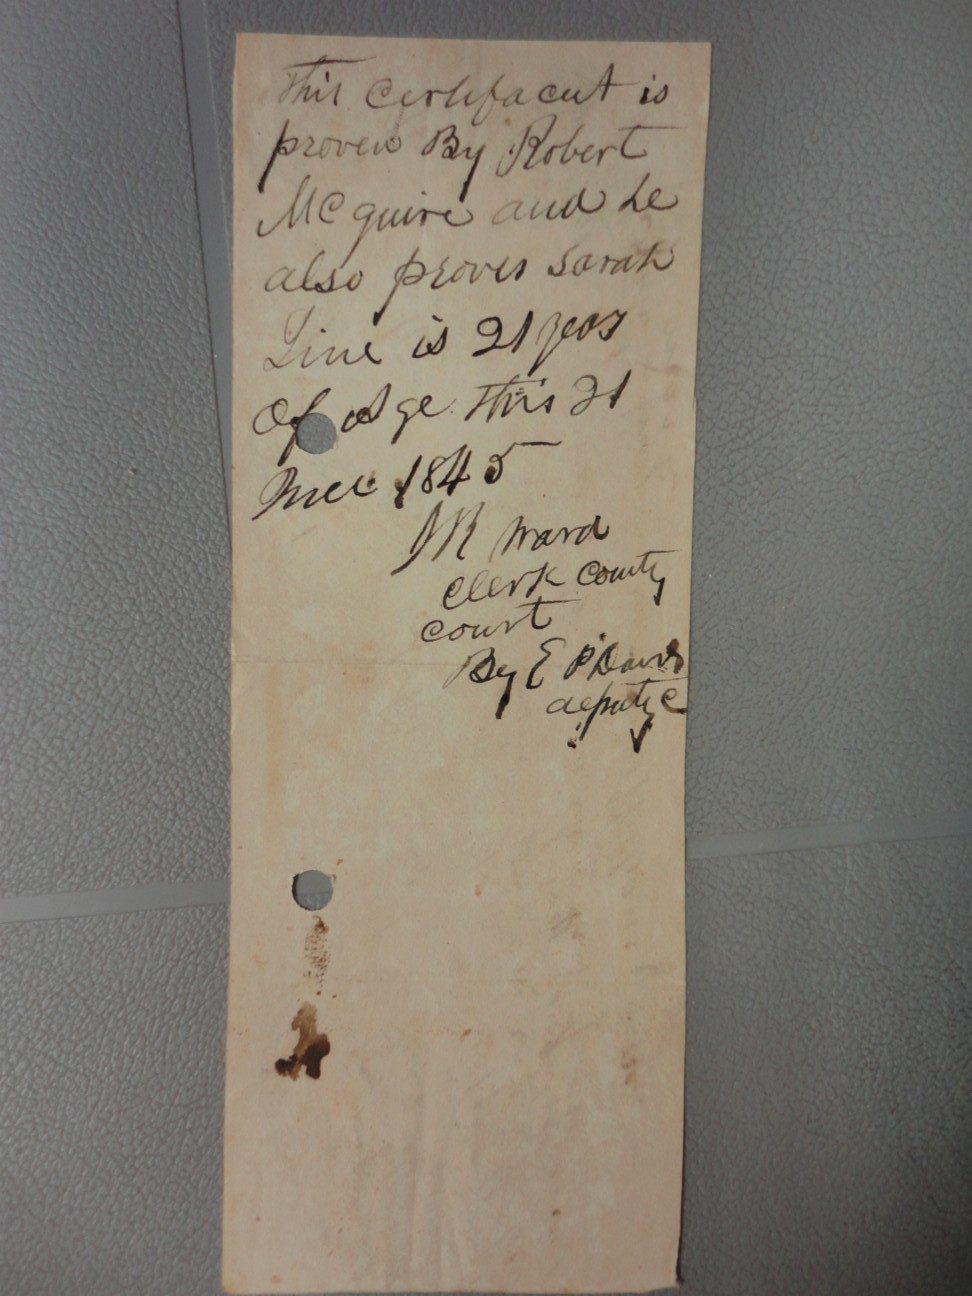 This Certifacut is
proven By Robert
McGuire and he
also proves Sarah
Line is 21 years
of Age This 21
1845
J R Ward
Clerk County
Court
By E P Davis
deputy C